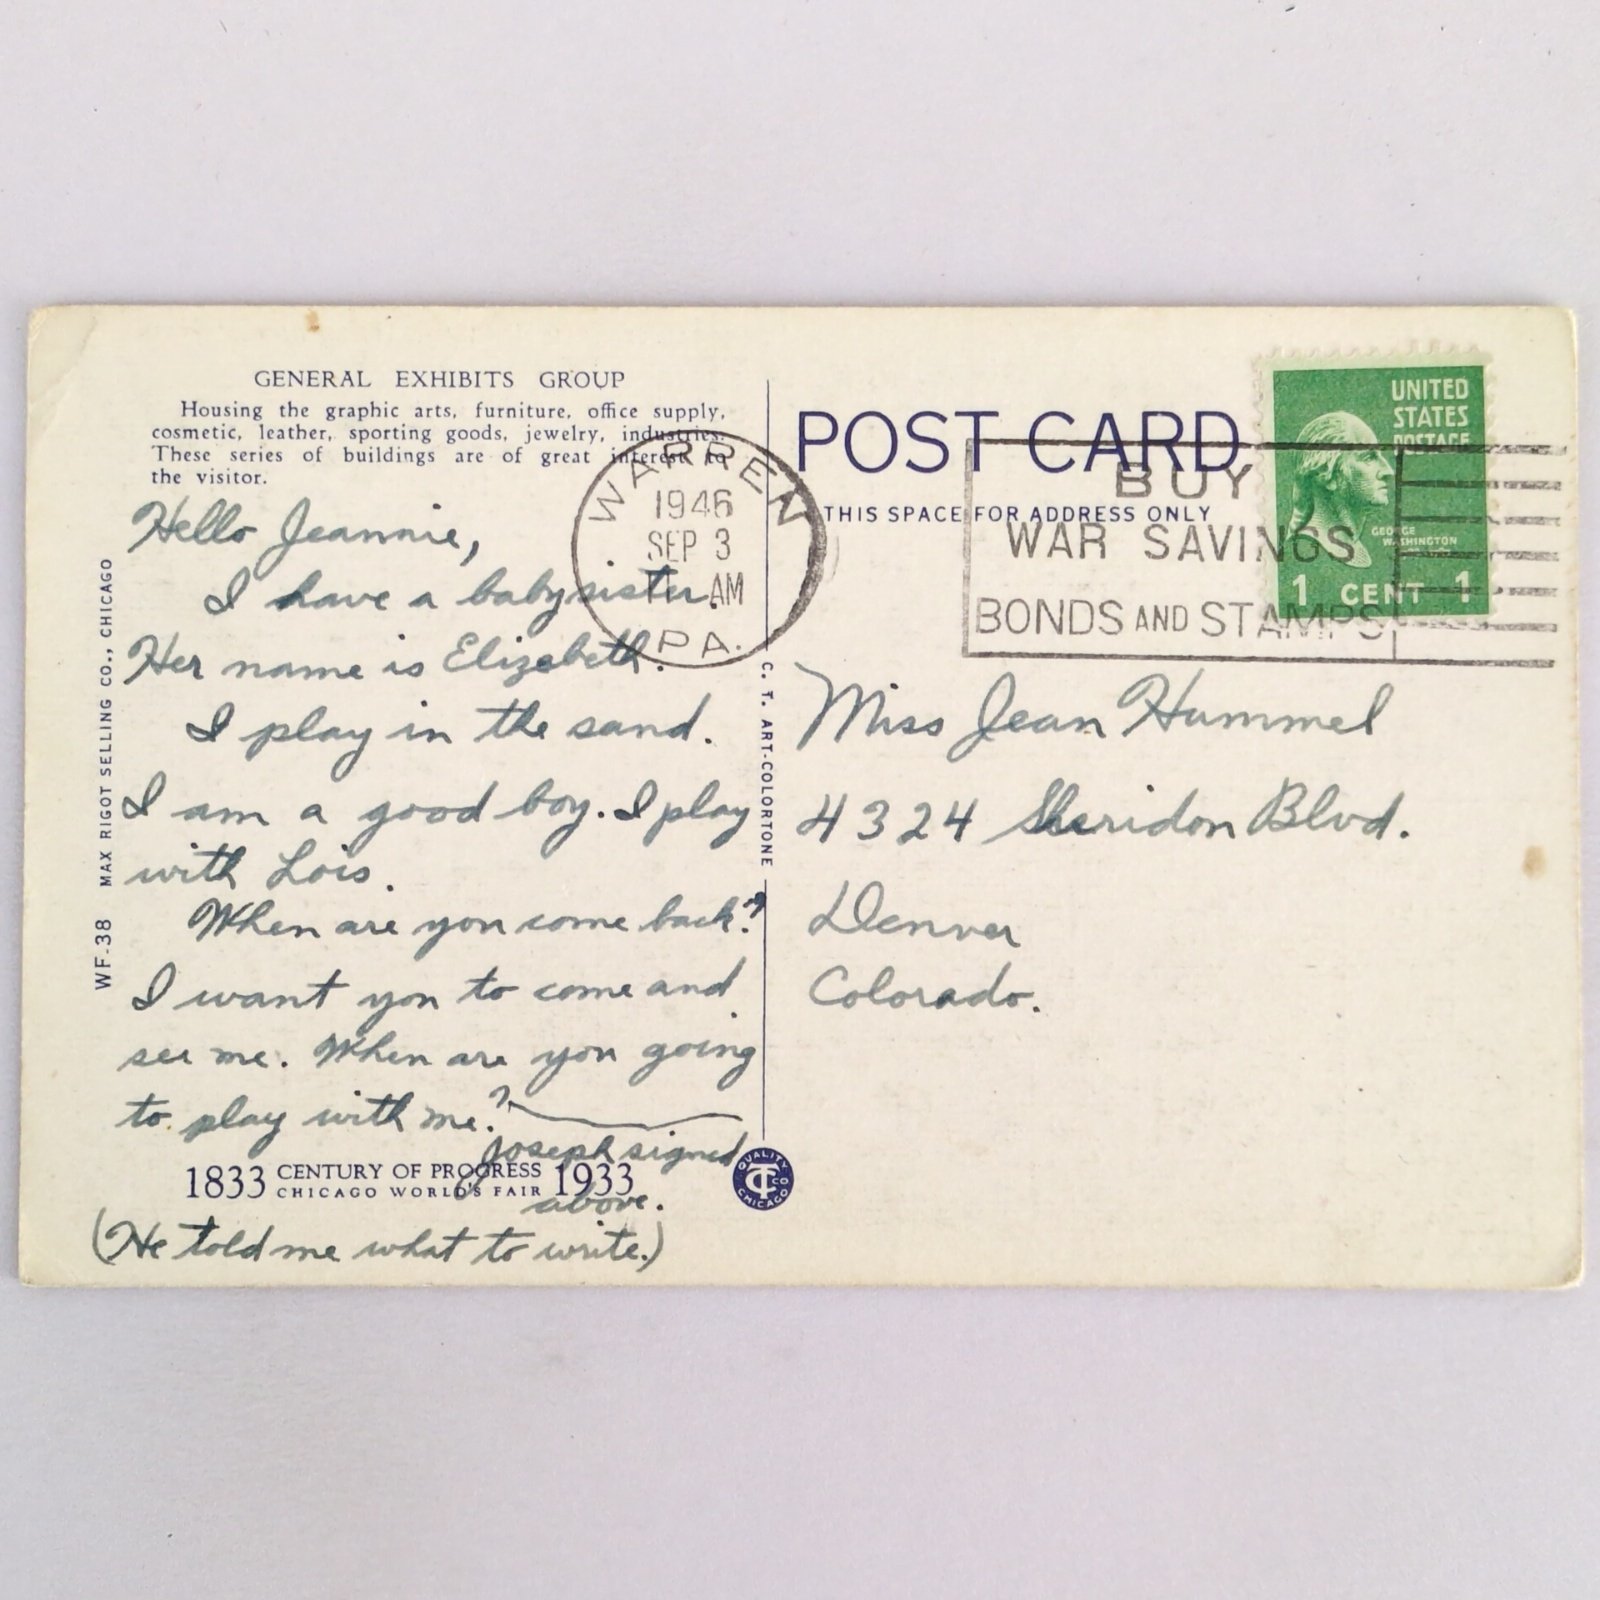 GENERAL EXHIBITS GROUP
Housing the graphic arts, furniture, office supply,
cosmetic, leather, sporting goods, jewelry, industries.
These series of buildings are of great interest to
the visitor.
WARREN
1946
SEP 3
AM
PA.
Hello Jeannie,
I have a baby sister.
Her name is Elizabeth.
I play in the sand.
I am a good boy. I play
with Lois.
When are you come back?
I want you to come and
see me. When are you going
to play with me?
Joseph signed
above.
(He told me what to write.)
1833 CENTURY OF PROGRESS 1933
CHICAGO WORLD'S FAIR
WF-38 MAX RIGOT SELLING CO., CHICAGO
C. T. ART-COLORTONE
QUALITY
CT CO
CHICAGO
POST CARD
THIS SPACE FOR ADDRESS ONLY
BUY
WAR SAVINGS
BONDS AND STAMPS
UNITED
STATES
POSTAGE
GEORGE
WASHINGTON
1 CENT 1
Miss Jean Hummel
4324 Sheridon Blvd.
Denver
Colorado.